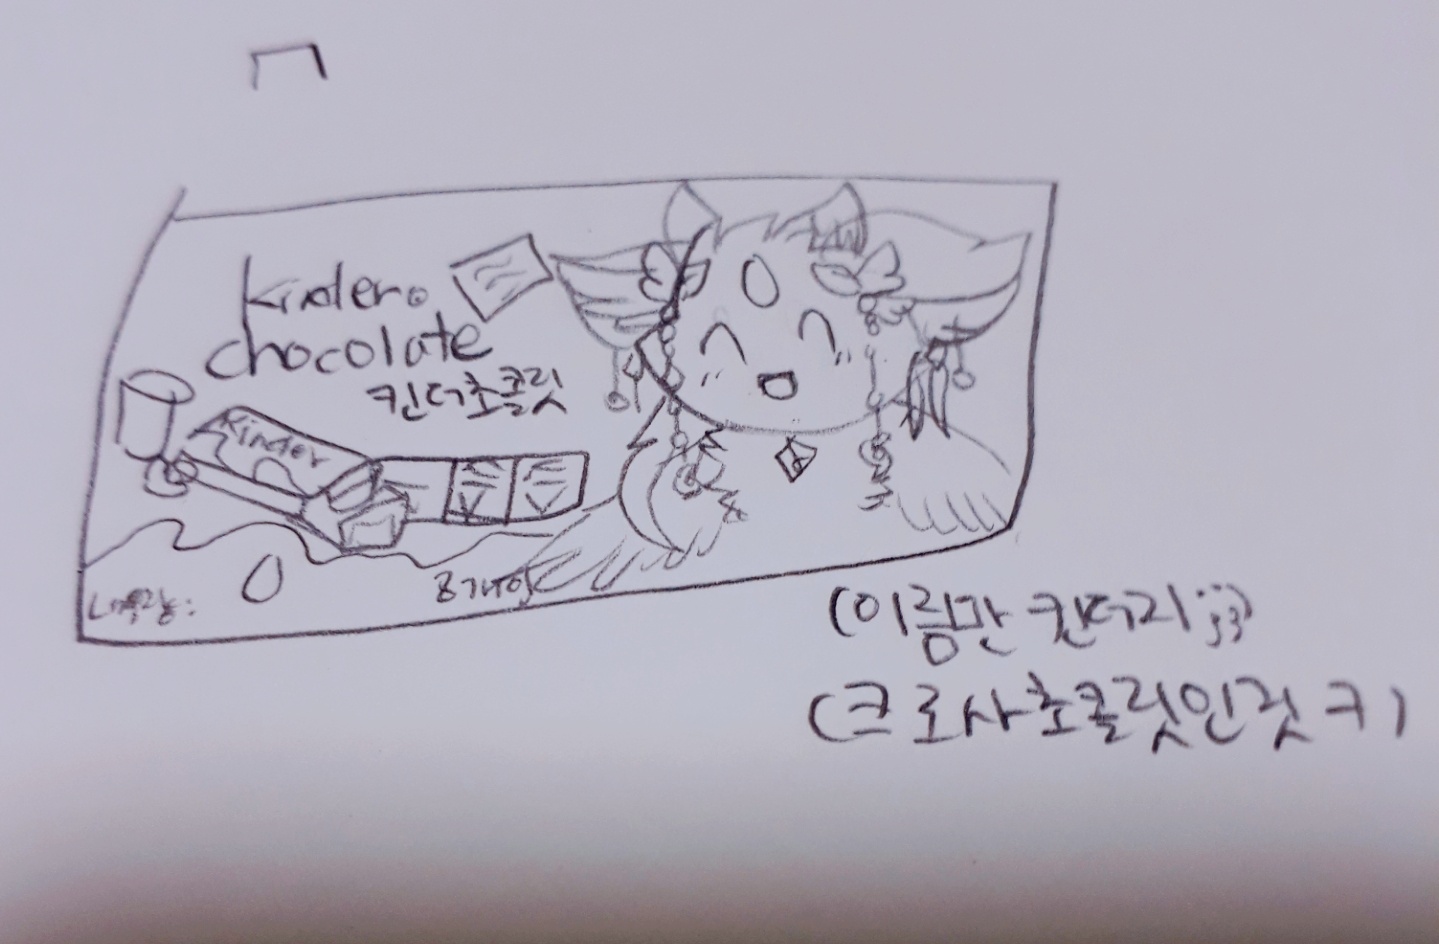 kinder
chocolate
킨더초콜릿
kinder
8개입
(이름만 킨더리;;)
(크로사초콜릿인것 ㅋ)